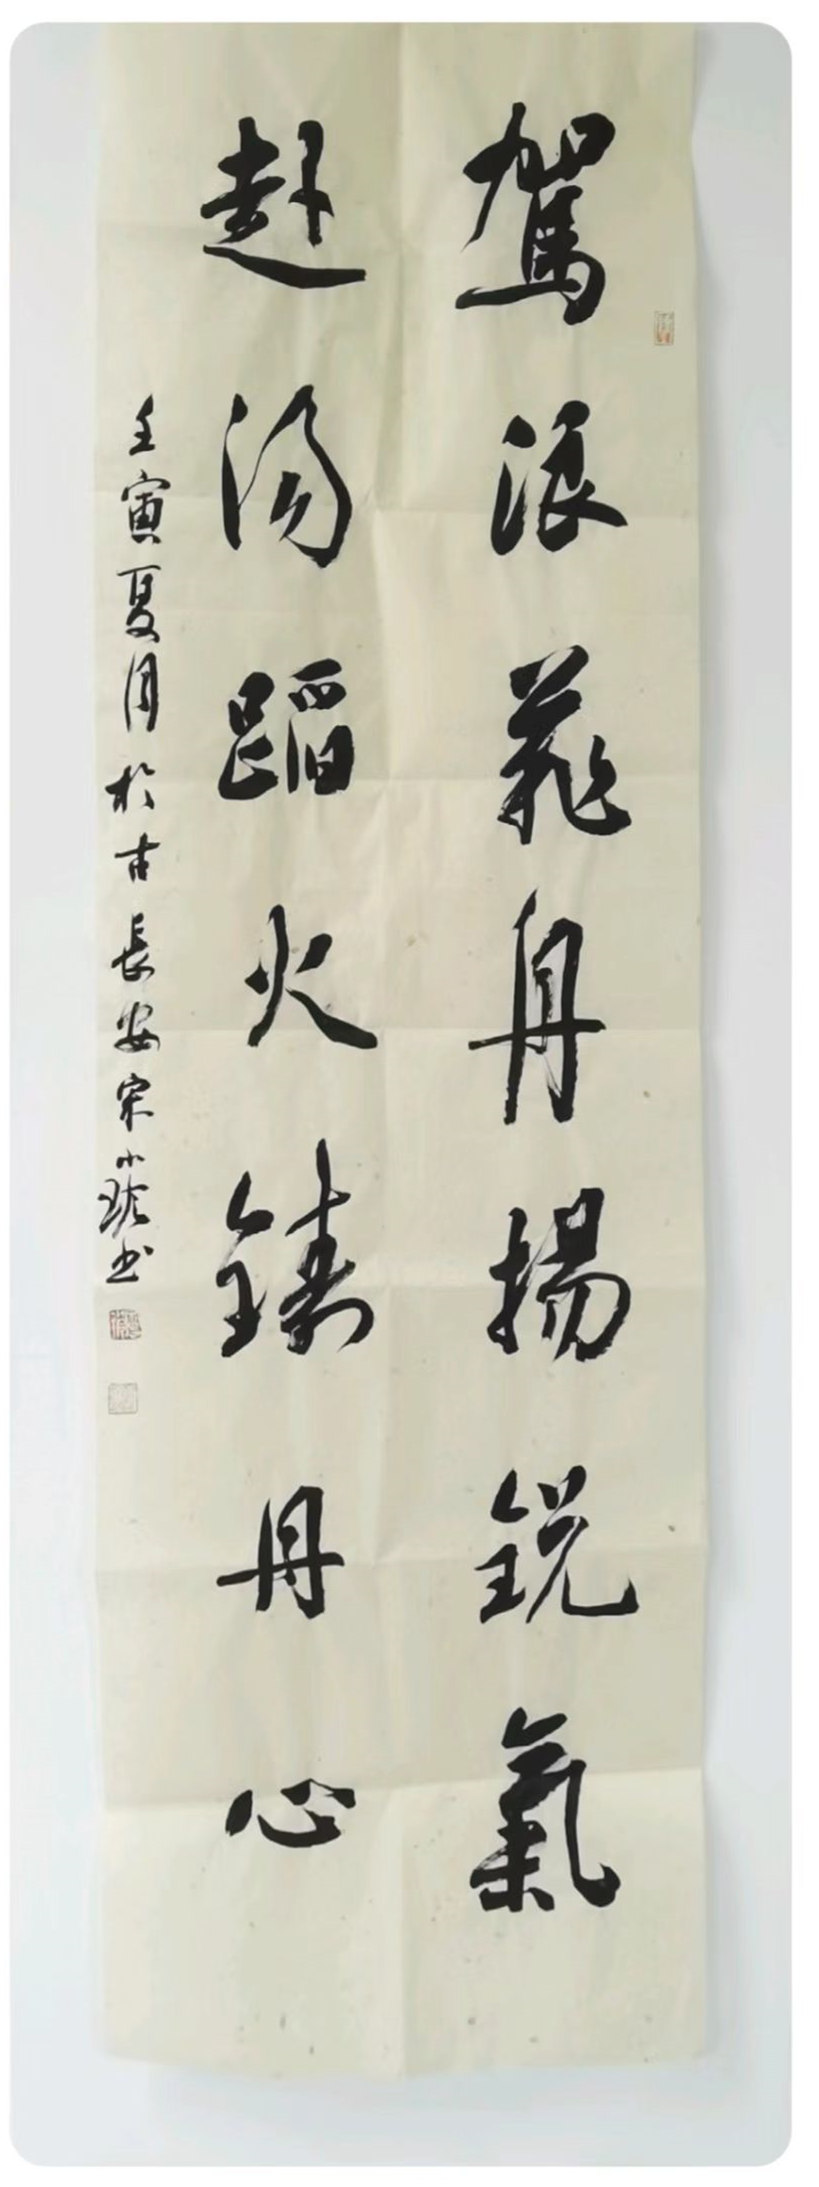 駕浪飛舟揚銳氣
赴湯蹈火鑄丹心
壬寅夏月於古長安宋小書